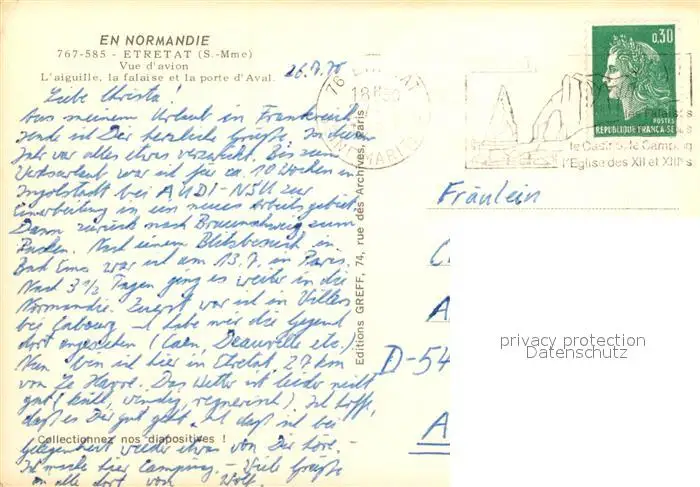 EN NORMANDIE
767-585 - ETRETAT (S.-Mme)
Vue d'avion
L'aiguille, la falaise et la porte d'Aval.
26.7.70
Liebe Christa!
Aus meinem Urlaub in Frankreich
sende ich Dir herzliche Grüße. In diesem
Jahr war alles etwas verzwickt. Bis zum
Urlaub war ich für ca. 10 Wochen in
Ingolstadt bei AUDI-NSU zur
Einarbeitung in ein neues Arbeitsgebiet.
Dann zurück nach Braunschweig zum
Packen. Nach einem Blitzbesuch in
Bad Ems war ich am 13.7. in Paris.
Nach 3 1/2 Tagen ging es weiter in die
Normandie. Zuerst war ich in Villers
bei Cabourg und habe mir die Gegend
dort angesehen (Caen, Deauville etc.)
Nun bin ich hier in Etretat, 27 km
von Le Havre. Das Wetter ist leider nicht
gut (kühl, windig, regnerisch). Ich hoffe,
daß es Dir gut geht und daß ich bei
Collectionnez nos diapositives !
Gelegenheit wieder etwas von Dir höre. -
Ich mache hier Camping. - Viele Grüße
an alle dort von Wolf.
Editions GREFF, 74, rue des Archives, Paris
76 ETRETAT
18H30
MARIT
Falaises
le Casino le Camping
l'Eglise des XII et XIIIs
0,30
POSTES
REPUBLIQUE FRANÇAISE
Fräulein
C
A
D-54
A
privacy protection
Datenschutz